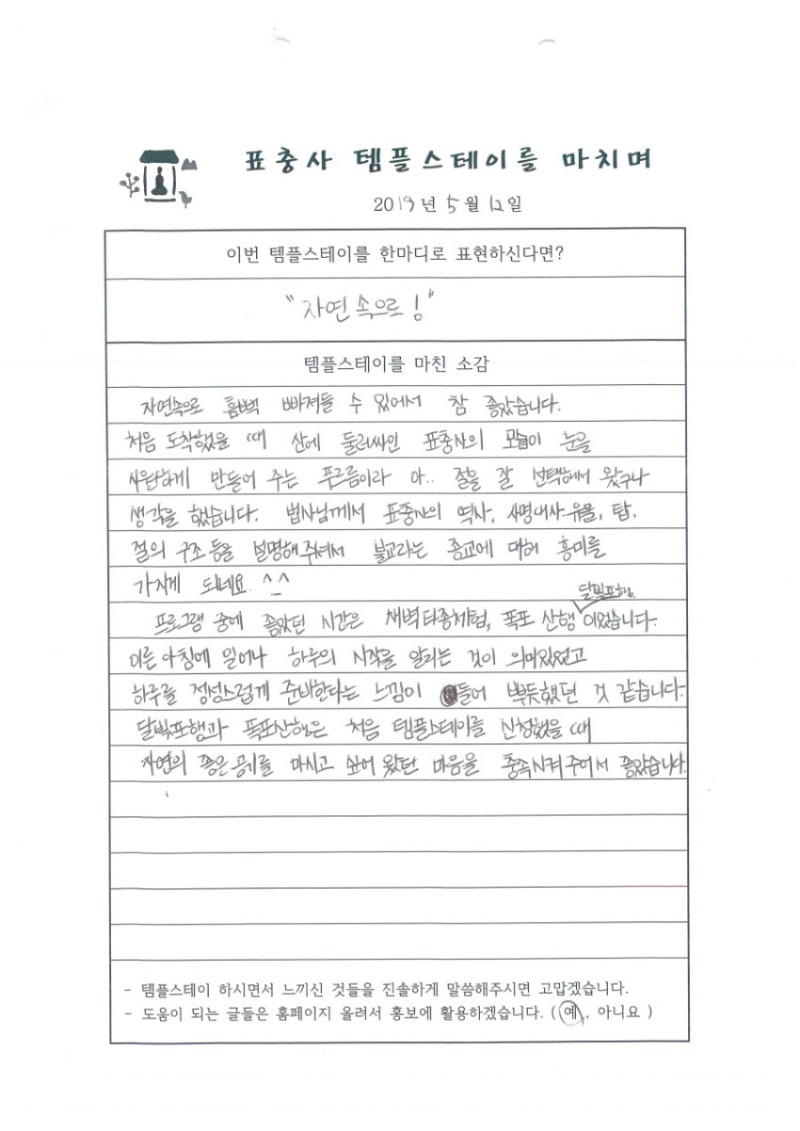 표충사 템플스테이를 마치며
2019년 5월 12일
이번 템플스테이를 한마디로 표현하신다면?
"자연 속으로!"
템플스테이를 마친 소감
자연속으로 흠뻑 빠져들 수 있어서 참 좋았습니다.
처음 도착했을 때 산에 둘러싸인 표충사의 모습이 눈을
시원하게 만들어 주는 푸르름이라 아.. 절을 잘 선택해서 왔구나
생각을 했습니다. 법사님께서 표충사의 역사, 사명대사 유물, 탑,
절의 구조 등을 설명해 주셔서 불교라는 종교에 대해 흥미를
가지게 되네요. ^_^
프로그램 중에 좋았던 시간은 새벽타종체험, 폭포 산행 달빛포행 이었습니다.
이른 아침에 일어나 하루의 시작을 알리는 것이 의미있었고
하루를 정성스럽게 준비한다는 느낌이 들어 뿌듯했던 것 같습니다.
달빛포행과 폭포산행은 처음 템플스테이를 신청했을 때
자연의 좋은 공기를 마시고 싶어 왔던 마음을 충족시켜 주어서 좋았습니다.
- 템플스테이 하시면서 느끼신 것들을 진솔하게 말씀해주시면 고맙겠습니다.
- 도움이 되는 글들은 홈페이지 올려서 홍보에 활용하겠습니다. ( 예 , 아니요 )